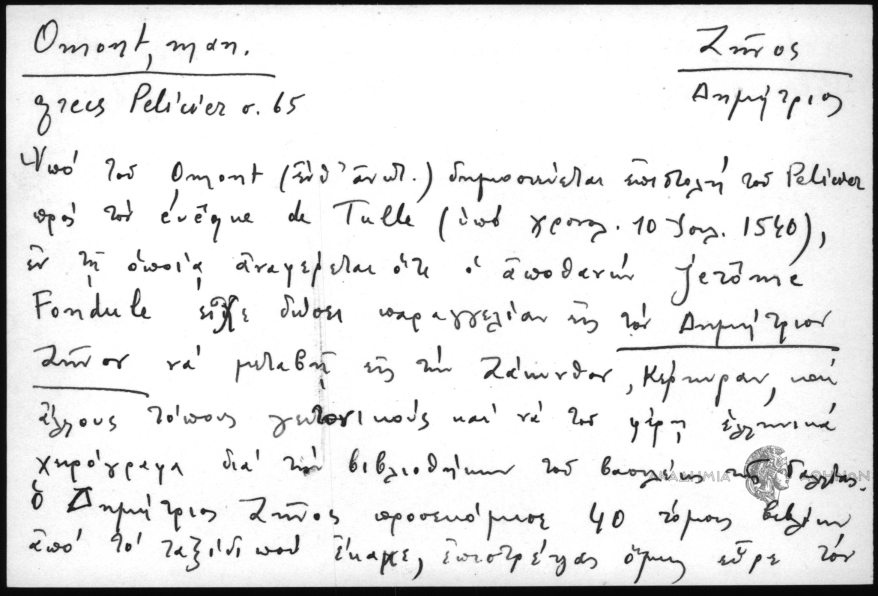 Omont, man.
Ζῆνος
grecs Pelicier σ. 65
Δημήτριος
Ὑπό τοῦ Omont (ἔνθ' ἀνωτ.) δημοσιεύεται ἐπιστολή τοῦ Pelicier
πρός τόν évêque de Tulle (ὑπό χρονολ. 10 Ἰουλ. 1540),
ἐν τῇ ὁποίᾳ ἀναφέρεται ὅτι ὁ ἀποθανών Jérôme
Fondule εἶχε δώσει παραγγελίαν εἰς τόν Δημήτριον
Ζῆνον νά μεταβῇ εἰς τήν Ζάκυνθον, Κέρκυραν, καί
ἄλλους τόπους γειτονικούς καί νά τοῦ φέρῃ ἑλληνικά
χειρόγραφα διά τήν βιβλιοθήκην τοῦ βασιλέως τῆς Γαλλίας.
Ὁ Δημήτριος Ζῆνος προσεκόμισε 40 τόμους βιβλίων
ἀπό τό ταξίδι πού ἔκαμε, ἐπιστρέψας ὅμως εὗρε τόν